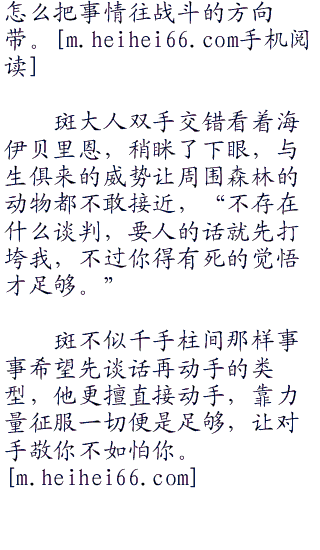 怎么把事情往战斗的方向
带。[m.heihei66.com手机阅
读]
斑大人双手交错看着海
伊贝里恩，稍眯了下眼，与
生俱来的威势让周围森林的
动物都不敢接近，“不存在
什么谈判，要人的话就先打
垮我，不过你得有死的觉悟
才足够。”
斑不似千手柱间那样事
事希望先谈话再动手的类
型，他更擅直接动手，靠力
量征服一切便是足够，让对
手敬你不如怕你。
[m.heihei66.com]